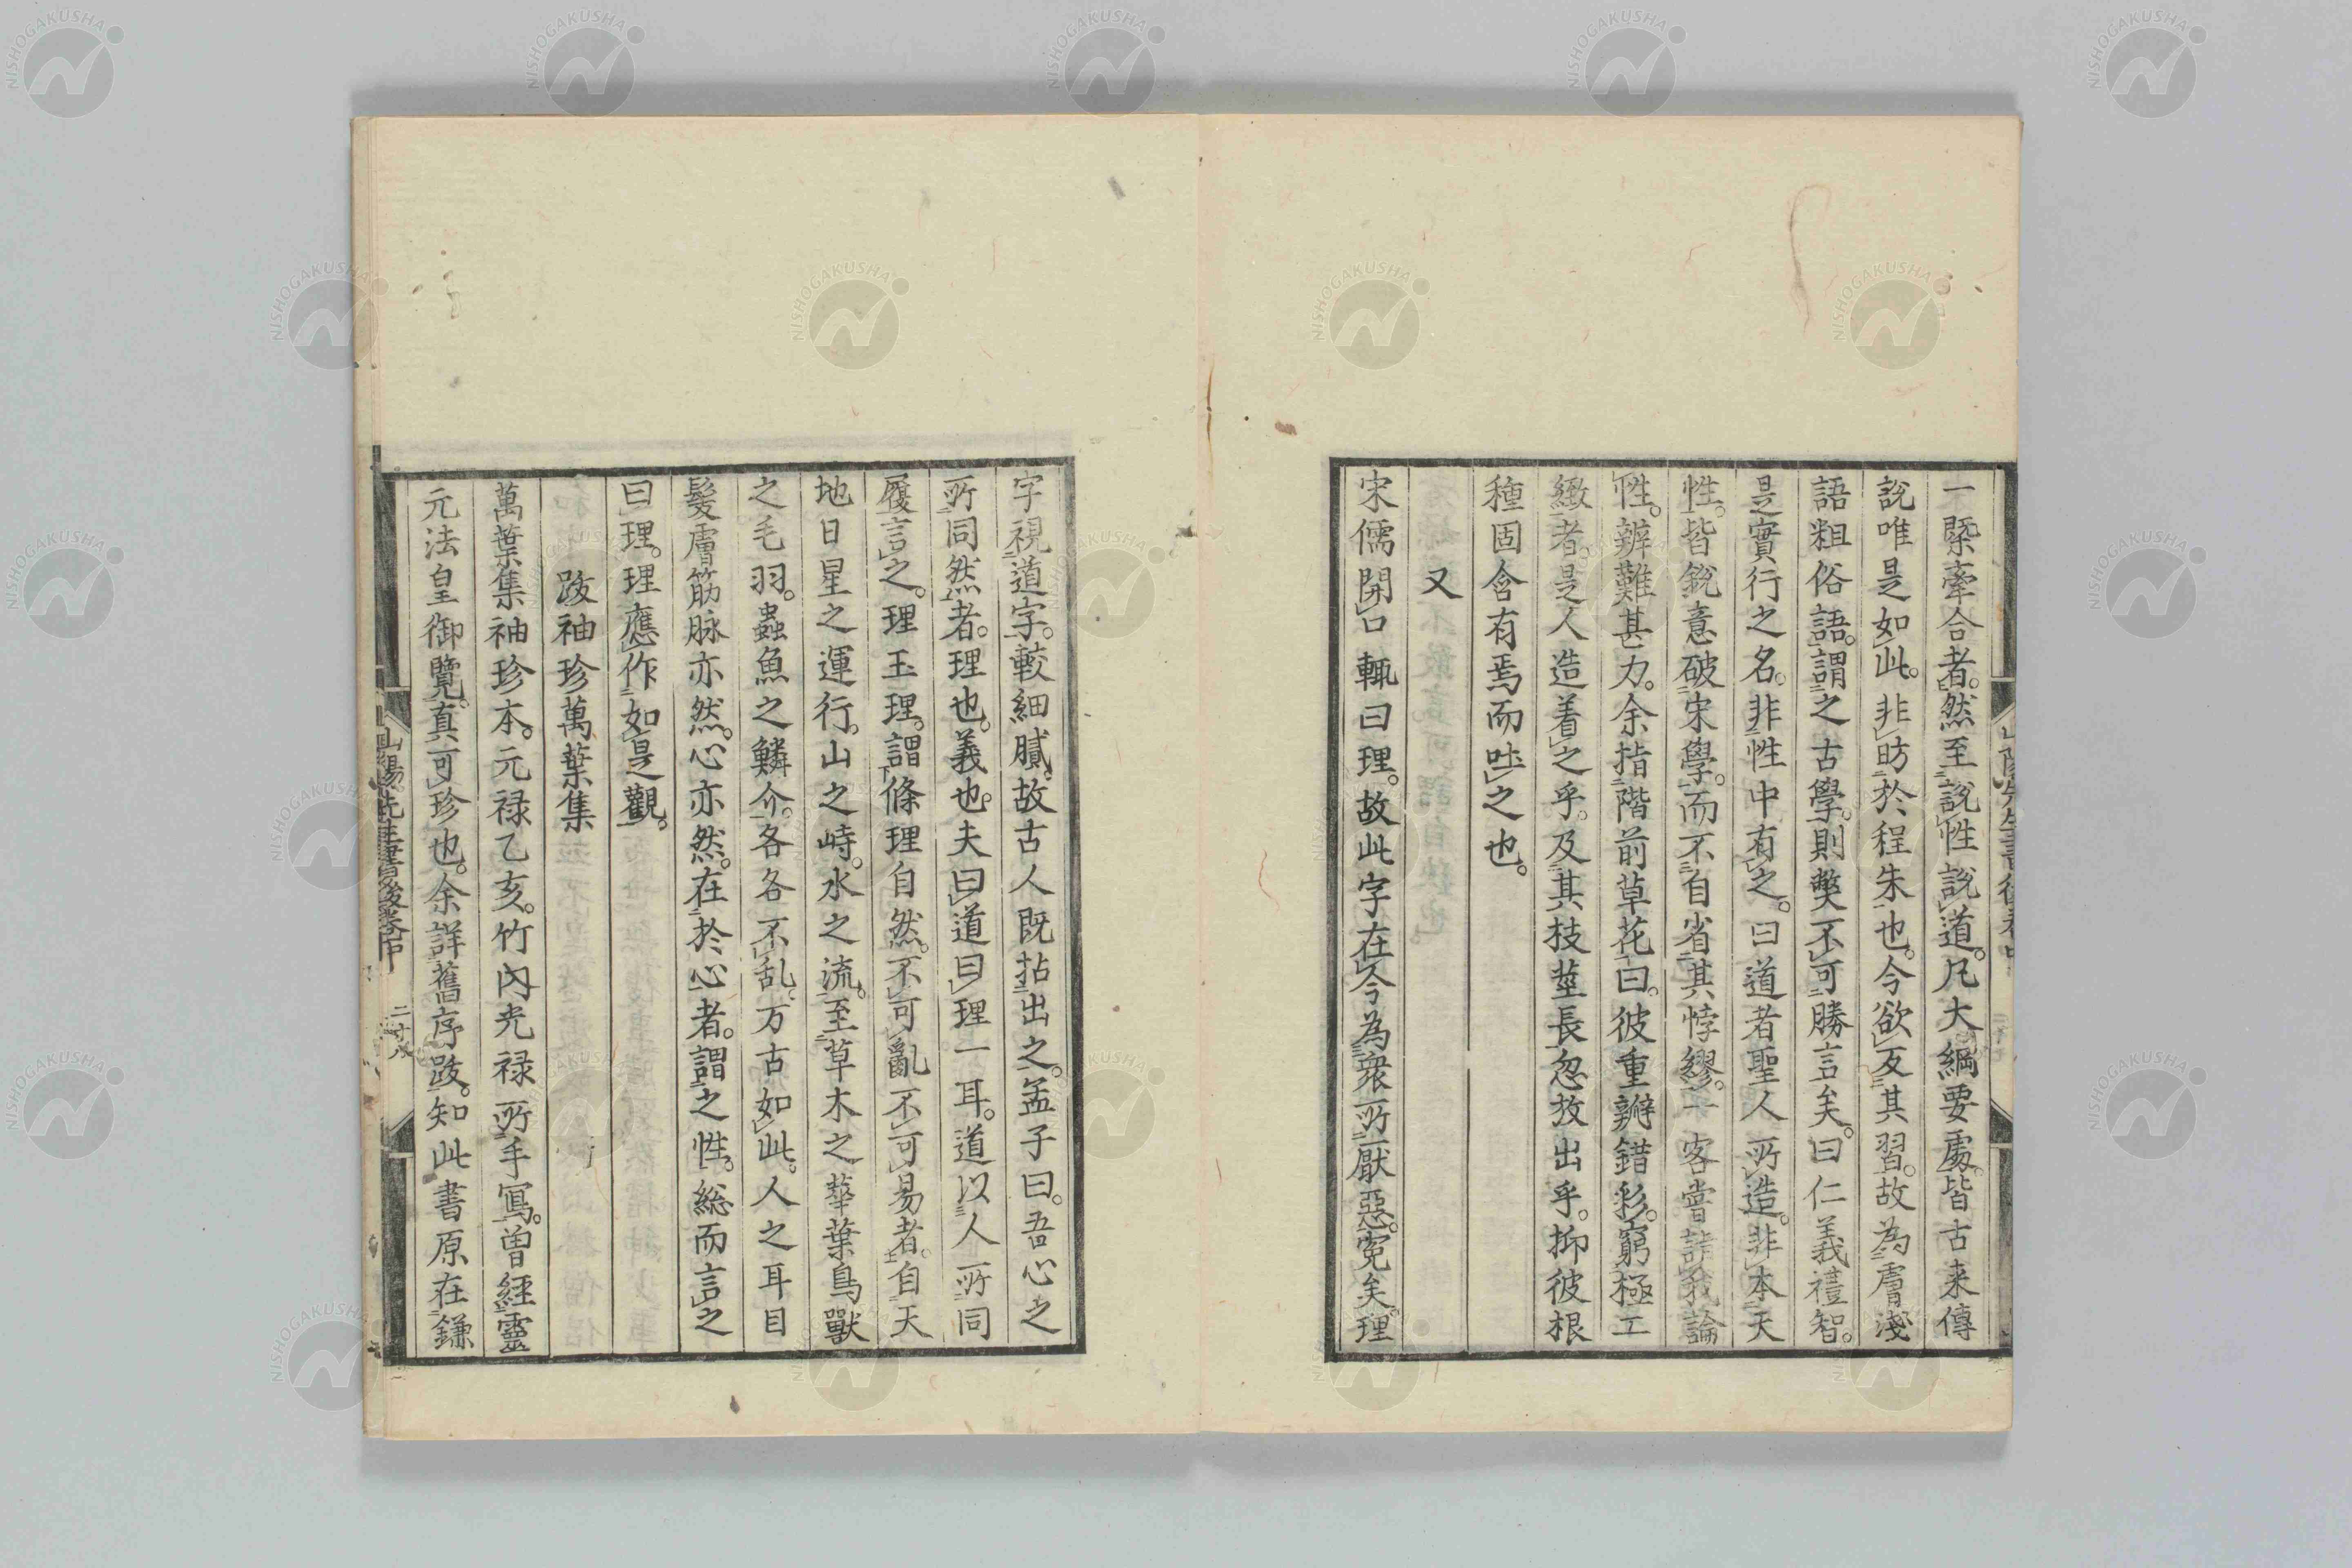 一槩牽合者。然至說性說道。凡大綱要處。皆古来傳
說唯是如此。非昉於程朱也。今欲反其習。故為膚淺
語粗俗語。謂之古學。則獘不可勝言矣。曰仁義禮智。
是實行之名。非性中有之。曰道者聖人所造。非本天
性。皆銳意破宋學。而不自省其悖繆。一客嘗詰我論
性。辨難甚力。余指階前草花曰。彼重瓣錯彩。窮極工
緻者。是人造着之乎。及其枝莖長忽放出乎。抑彼根
種固含有焉而吐之也。
又
宋儒開口輒曰理。故此字在今為衆所厭惡。寃矣。理
字視道字。較細膩。故古人既拈出之。孟子曰。吾心之
所同然者。理也。義也。夫曰道曰理一耳。道以人所同
履言之。理玉理。謂條理自然。不可亂不可易者。自天
地日星之運行。山之峙。水之流。至草木之華葉鳥獸
之毛羽。蟲魚之鱗介。各各不乱。万古如此。人之耳目
髮膚筋脉亦然。心亦然。在於心者。謂之性。総而言之
曰理。理應作如是觀。
跋袖珍萬葉集
萬葉集袖珍本。元禄乙亥。竹内光禄所手寫。曽経靈
元法皇御覽。真可珍也。余詳舊序跋。知此書原在鎌
山陽先生書後卷中
二十八
NISHOGAKUSHA